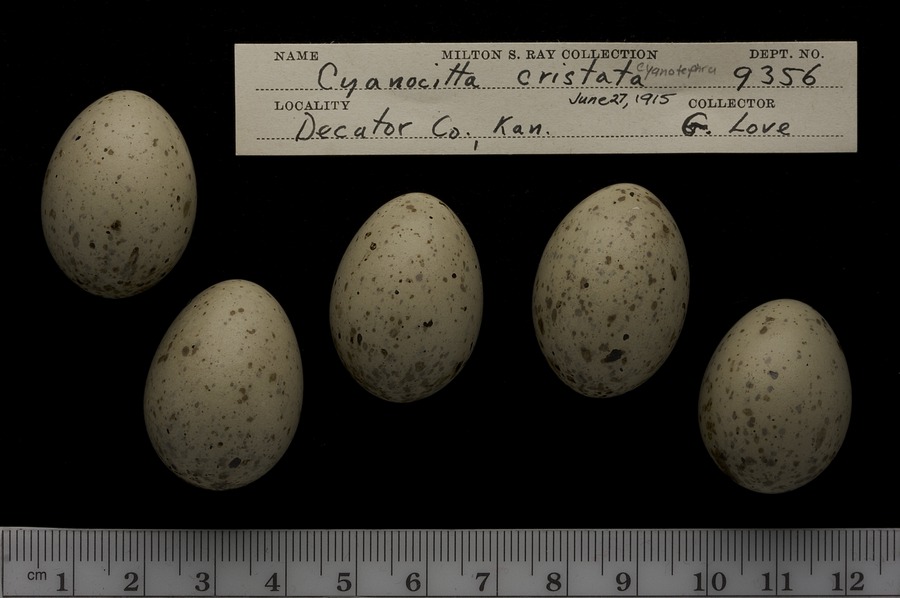 NAME MILTON S. RAY COLLECTION DEPT. NO.
Cyanocitta cristata cyanotephra 9356
LOCALITY June 27, 1915 COLLECTOR
Decator Co., Kan. G. Love
cm 1 2 3 4 5 6 7 8 9 10 11 12